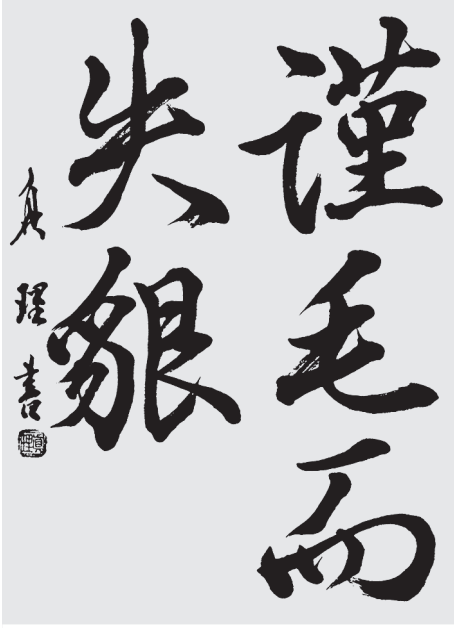 謹毛而
失貌
真理書